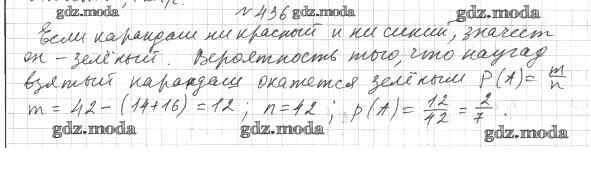 №436
gdz.moda gdz.moda gdz.moda
Если карандаш ни красный и ни синий, значит
он – зелёный. Вероятность того, что наугад
взятый карандаш окажется зелёным P(A) = m/n
m = 42 – (14+16) = 12; n=42; p(A) = 12/42 = 2/7.
gdz.moda gdz.moda gdz.moda